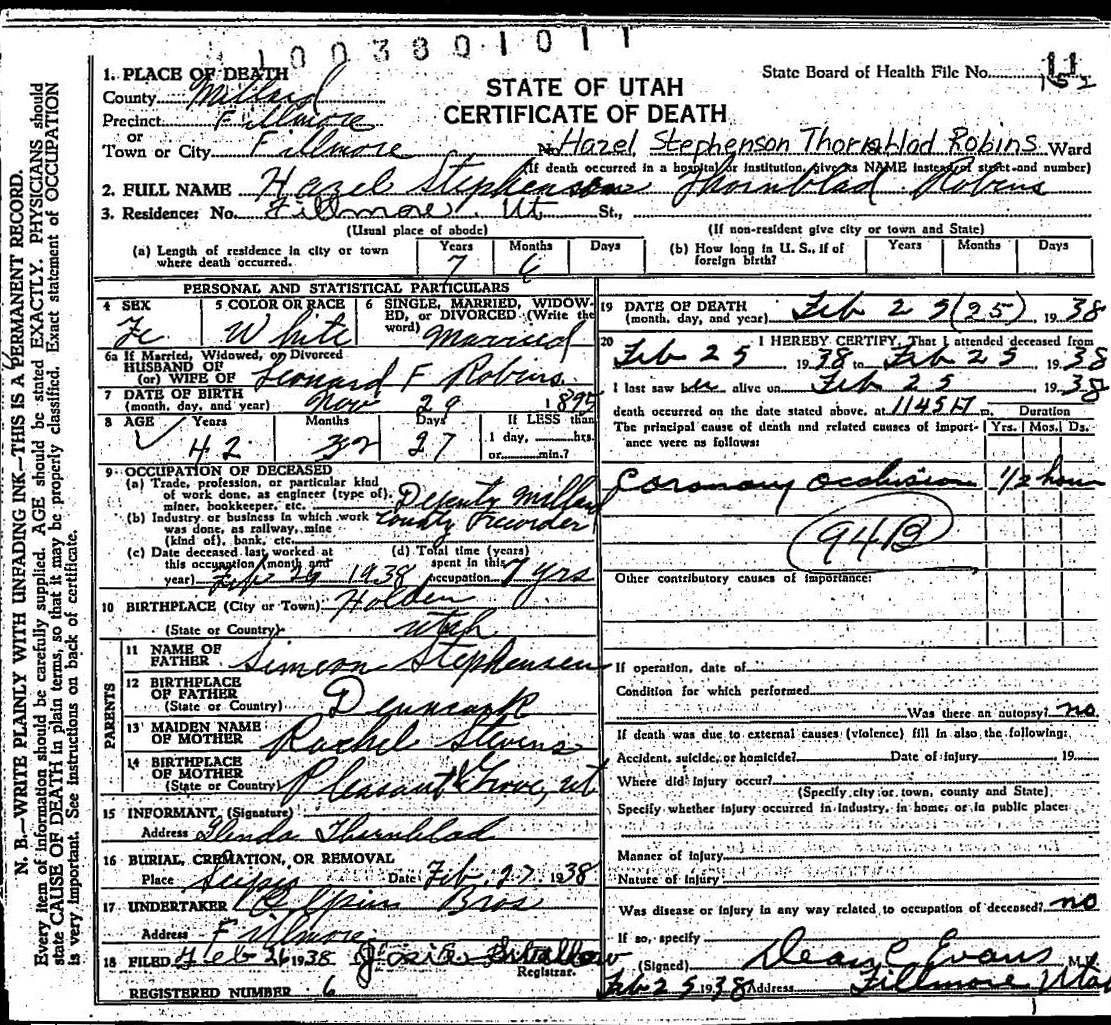 1003801011
State Board of Health File No. 11
152
STATE OF UTAH
CERTIFICATE OF DEATH
1. PLACE OF DEATH
County Millard
Precinct Fillmore
or
Town or City Fillmore No. Hazel Stephenson Thornblad Robins Ward
(If death occurred in a hospital or institution, give its NAME instead of street and number)
2. FULL NAME Hazel Stephenson Thornblad Robins
3. Residence: No. Fillmore, Ut St.,
(Usual place of abode) (If non-resident give city or town and State)
(a) Length of residence in city or town where death occurred. Years 7 Months 6 Days
(b) How long in U. S., if of foreign birth? Years Months Days
PERSONAL AND STATISTICAL PARTICULARS
4 SEX Fe
5 COLOR OR RACE White
6 SINGLE, MARRIED, WIDOWED, or DIVORCED (Write the word) Married
6a If Married, Widowed, or Divorced
HUSBAND OF
(or) WIFE OF Leonard F Robins
7 DATE OF BIRTH
(month, day, and year) Nov 29 1895
8 AGE Years 42 Months Days 27
If LESS than
1 day, hrs.
or min.?
9 OCCUPATION OF DECEASED
(a) Trade, profession, or particular kind
of work done, as engineer (type of),
miner, bookkeeper, etc. Deputy Millard
(b) Industry or business in which work County Recorder
was done, as railway, mine
(kind of), bank, etc.
(c) Date deceased last worked at
this occupation (month and
year) 1938
(d) Total time (years)
spent in this
occupation 7 yrs
10 BIRTHPLACE (City or Town) Holden
(State or Country) Utah
PARENTS
11 NAME OF
FATHER Simeon Stephensen
12 BIRTHPLACE
OF FATHER
(State or Country) Denmark
13 MAIDEN NAME
OF MOTHER Rachel Stevens
14 BIRTHPLACE
OF MOTHER
(State or Country) Pleasant Grove, Ut
15 INFORMANT (Signature)
Address Glenda Thornblad
16 BURIAL, CREMATION, OR REMOVAL
Place Scipio Date Feb. 27 1938
17 UNDERTAKER Bros
Address Fillmore
18 FILED Feb 26 1938 Josie
Registrar.
REGISTERED NUMBER 6
19 DATE OF DEATH
(month, day, and year) Feb 25 (25), 1938
20 I HEREBY CERTIFY, That I attended deceased from
Feb 25 1938 to Feb 25 1938
I last saw her alive on Feb 25 1938
death occurred on the date stated above, at 1145 m. Duration
The principal cause of death and related causes of importance were as follows: Yrs. Mos. Ds.
Coronary Occlusion 1/2 hour
94B
Other contributory causes of importance:
If operation, date of
Condition for which performed
Was there an autopsy? no
If death was due to external causes (violence) fill in also the following:
Accident, suicide, or homicide? Date of injury 19
Where did injury occur?
(Specify city or town, county and State)
Specify whether injury occurred in industry, in home, or in public place:
Manner of injury
Nature of injury
Was disease or injury in any way related to occupation of deceased? no
If so, specify
(Signed) Dean C Evans M.D.
Feb 25 1938 Address Fillmore Utah
N. B.—WRITE PLAINLY WITH UNFADING INK—THIS IS A PERMANENT RECORD.
Every item of information should be carefully supplied. AGE should be stated EXACTLY. PHYSICIANS should
state CAUSE OF DEATH in plain terms, so that it may be properly classified. Exact statement of OCCUPATION
is very important. See instructions on back of certificate.